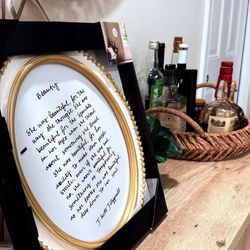 Beauty
She was beautiful, for the
way she thought. She was
beautiful, for the sparkle
in her eyes when she
about something she loved.
She was beautiful for her
ability to make other people
smile, even if she was sad.
No, she wasn't beautiful for
something as temporary
as her looks. She was beautiful,
deep down to her soul.
F. Scott Fitzgerald